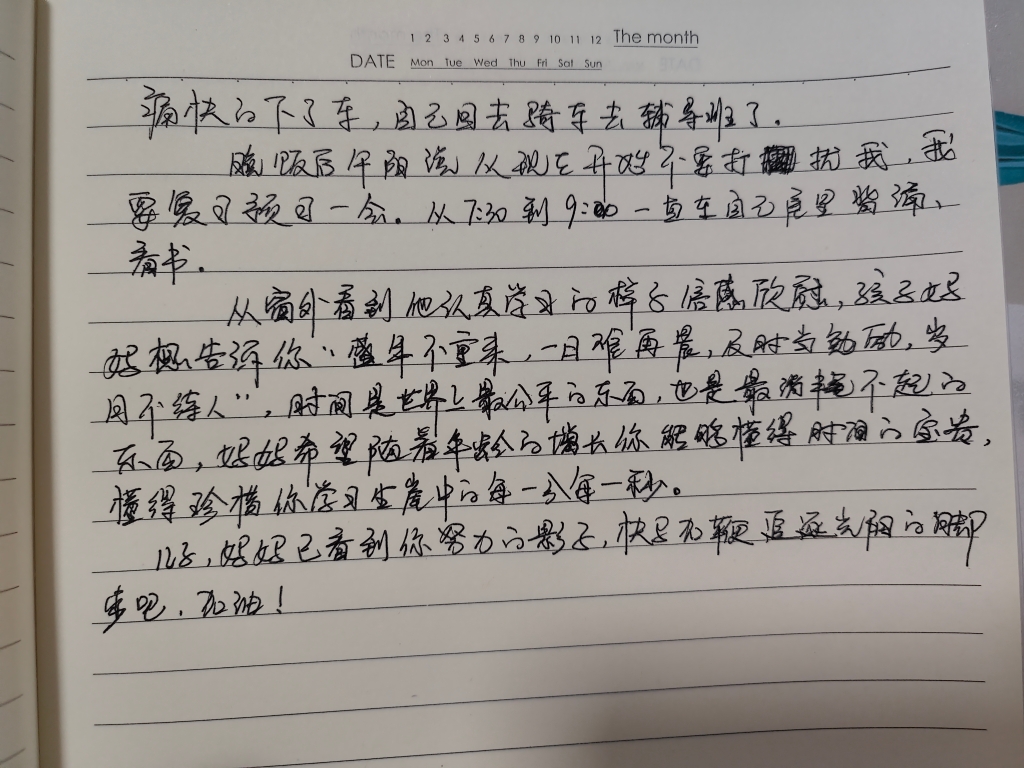 1 2 3 4 5 6 7 8 9 10 11 12 The month
DATE Mon Tue Wed Thu Fri Sat Sun
痛快的下了车，自己回去骑车去辅导班了。
晚饭后 从现在开始不要打扰我，我
要复习预习一会。从7:30到9:00一直在自己屋里背诵、
看书。
从窗外看到他认真学习的样子倍感欣慰，孩子妈
妈想告诉你“盛年不重来，一日难再晨，及时当勉励，岁
月不待人”，时间是世界上最公平的东西，也是最消耗不起的
东西，妈妈希望随着年龄的增长你能够懂得时间的宝贵，
懂得珍惜你学习生涯中的每一分每一秒。
儿子，妈妈已看到你努力的影子，快马加鞭追逐光阴的脚
步吧，加油！